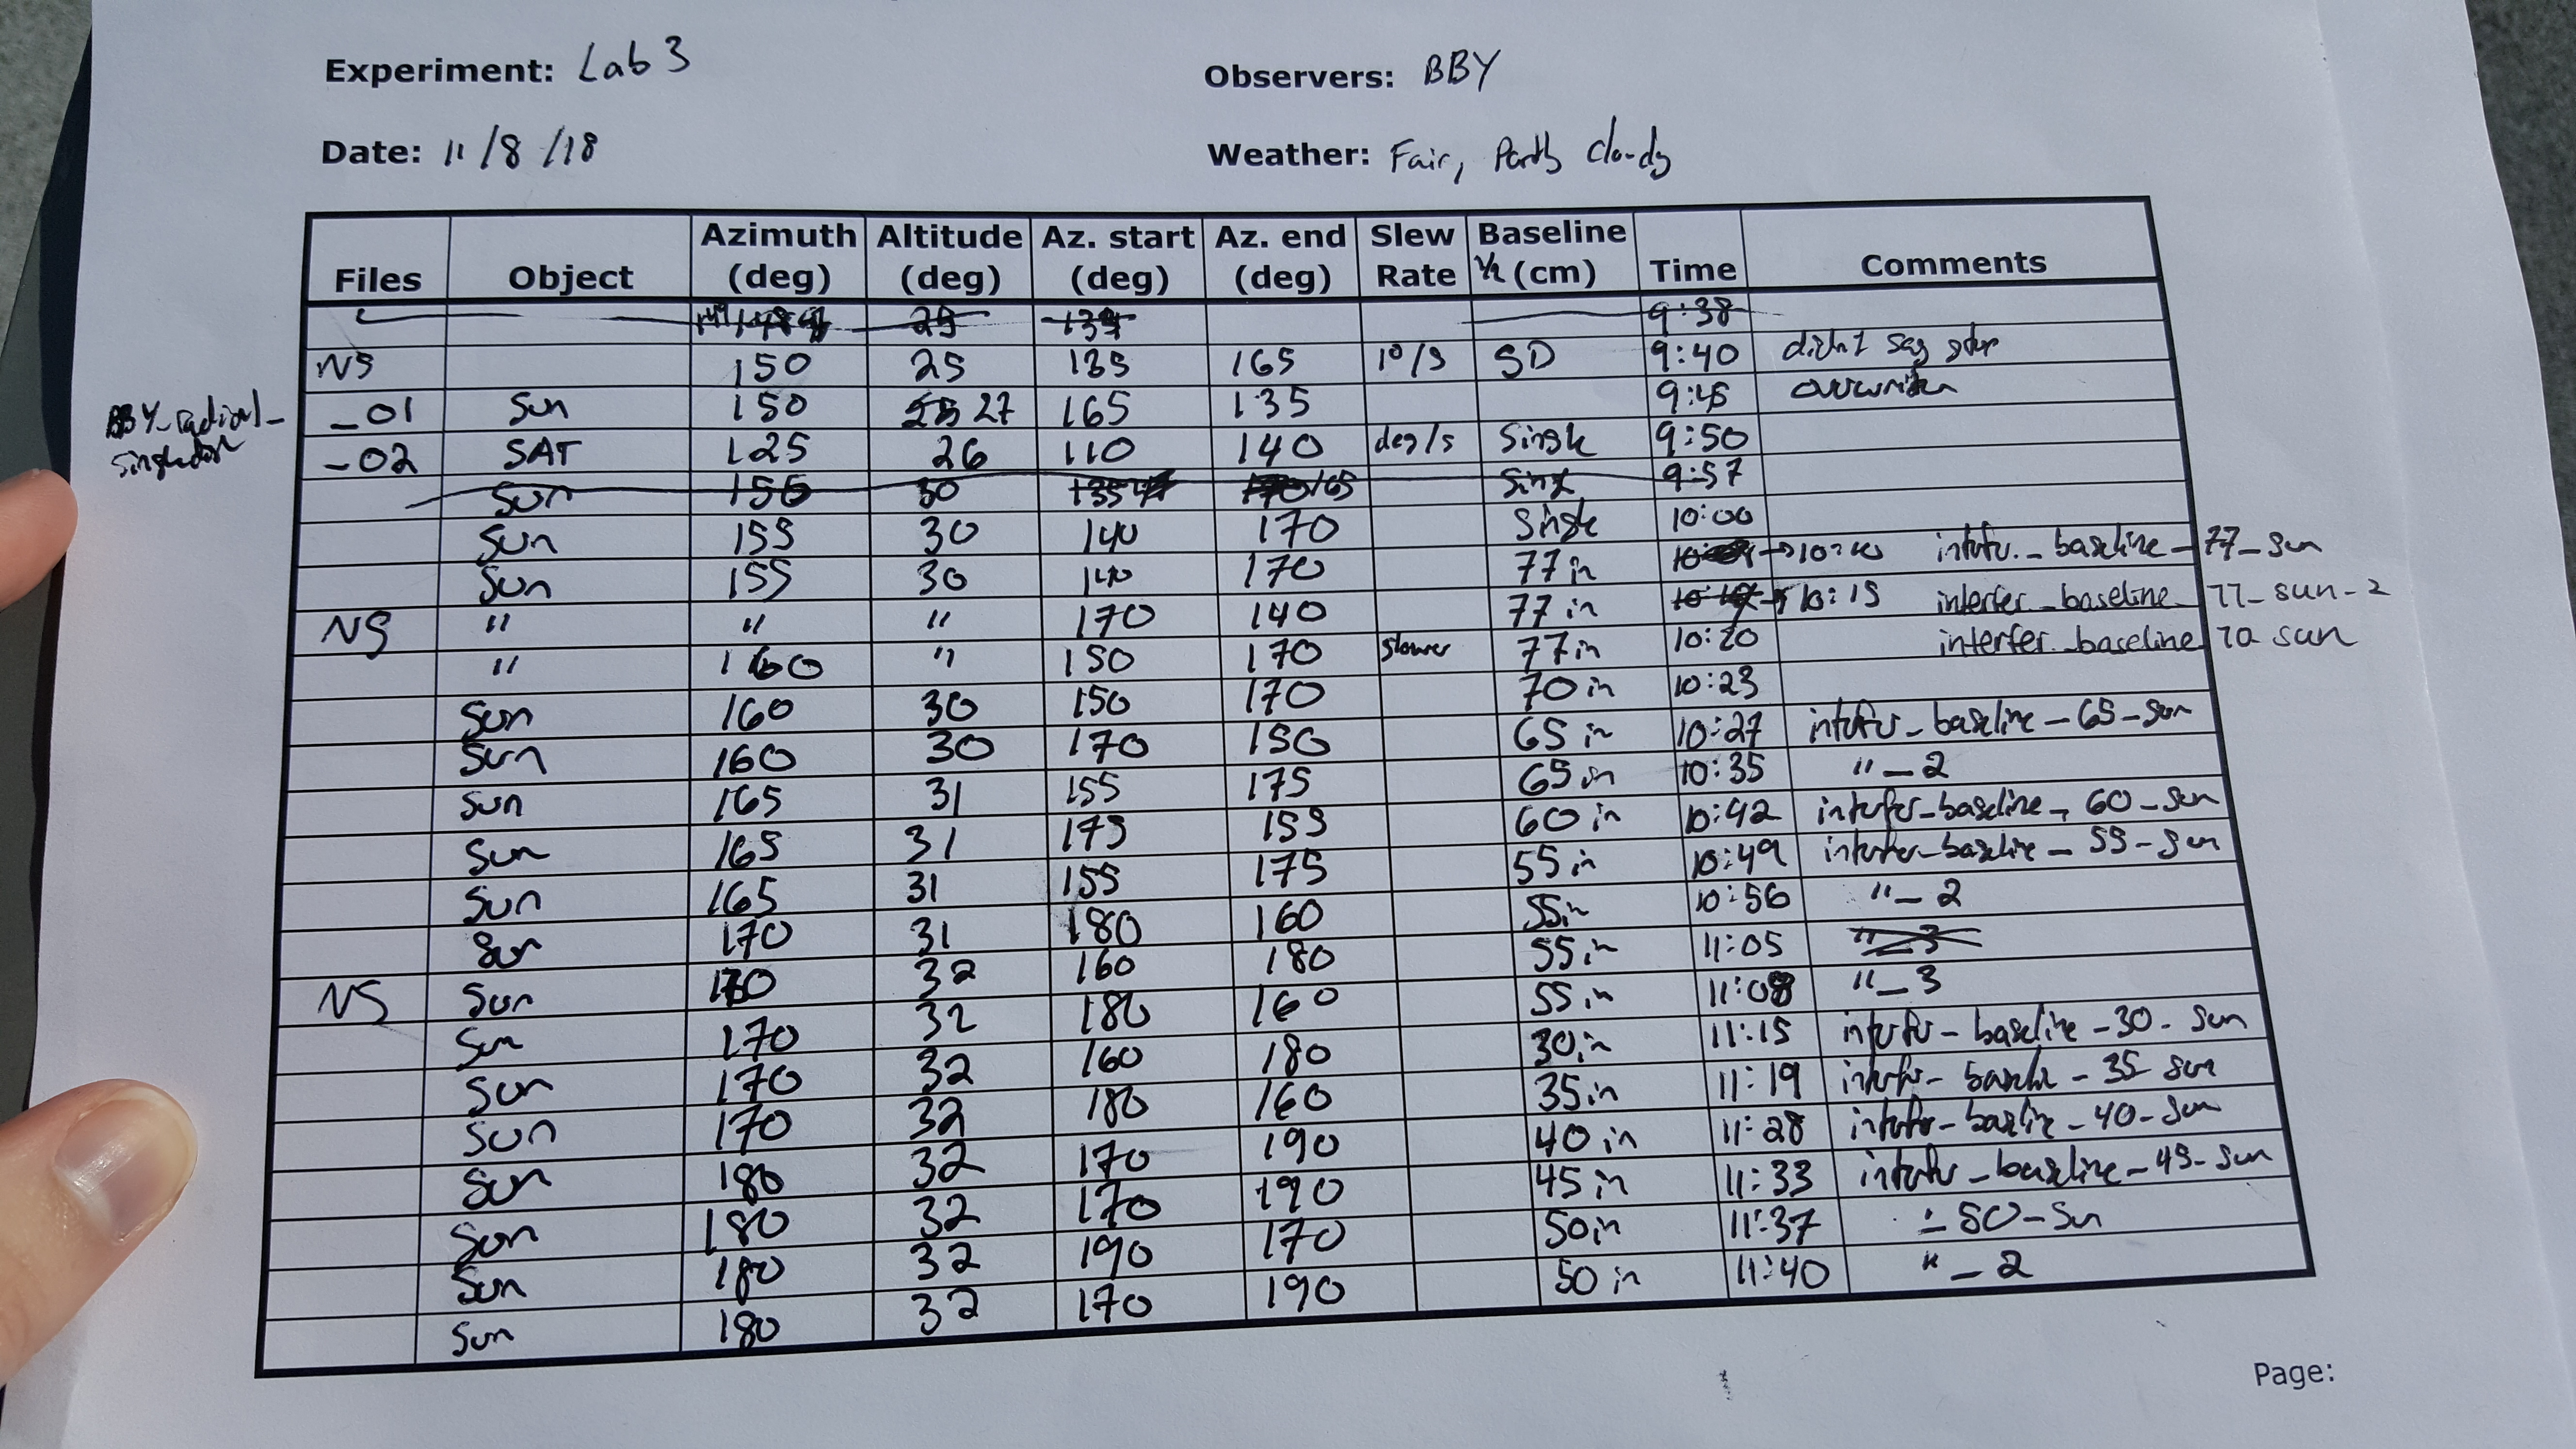 Experiment: Lab 3 Observers: BBY
Date: 11/8/18 Weather: Fair, Partly clouds
Files Object Azimuth (deg) Altitude (deg) Az. start (deg) Az. end (deg) Slew Rate Baseline (cm) Time Comments
25 135 9:38
NS 150 25 135 165 1°/s SD 9:40 didnt say star
_01 Sun 150 27 165 135 9:45
_02 SAT 125 26 110 140 deg/s Single 9:50
Sun 155 30 165 Single 9:57
Sun 155 30 140 170 Single 10:00
Sun 155 30 140 170 77in → 10:10 interfer_baseline_77_sun
NS " " " 170 140 77 in → 10:15 interfer_baseline_77_sun_2
" 160 " 150 170 slower 77in 10:20 interfer_baseline 70 sun
Sun 160 30 150 170 70in 10:23
Sun 160 30 170 150 65 in 10:27 interfer_baseline_65_sun
Sun 165 31 155 175 65 in 10:35 "_2
Sun 165 31 175 155 60 in 10:42 interfer_baseline_60_sun
Sun 165 31 155 175 55in 10:49 interfer_baseline_55_sun
Sun 170 31 180 160 55in 10:56 "_2
NS Sun 170 32 160 180 55in 11:05 "_3
Sun 170 32 180 160 55in 11:08 "_3
Sun 170 32 160 180 30in 11:15 interfer_baseline_30_sun
Sun 170 32 180 160 35in 11:19 interfer_baseline_35_sun
Sun 180 32 170 190 40in 11:28 interfer_baseline_40_sun
Sun 180 32 170 190 45in 11:33 interfer_baseline_45_sun
Sun 180 32 190 170 50in 11:37 _50_Sun
Sun 180 32 170 190 50 in 11:40 "_2
Page: